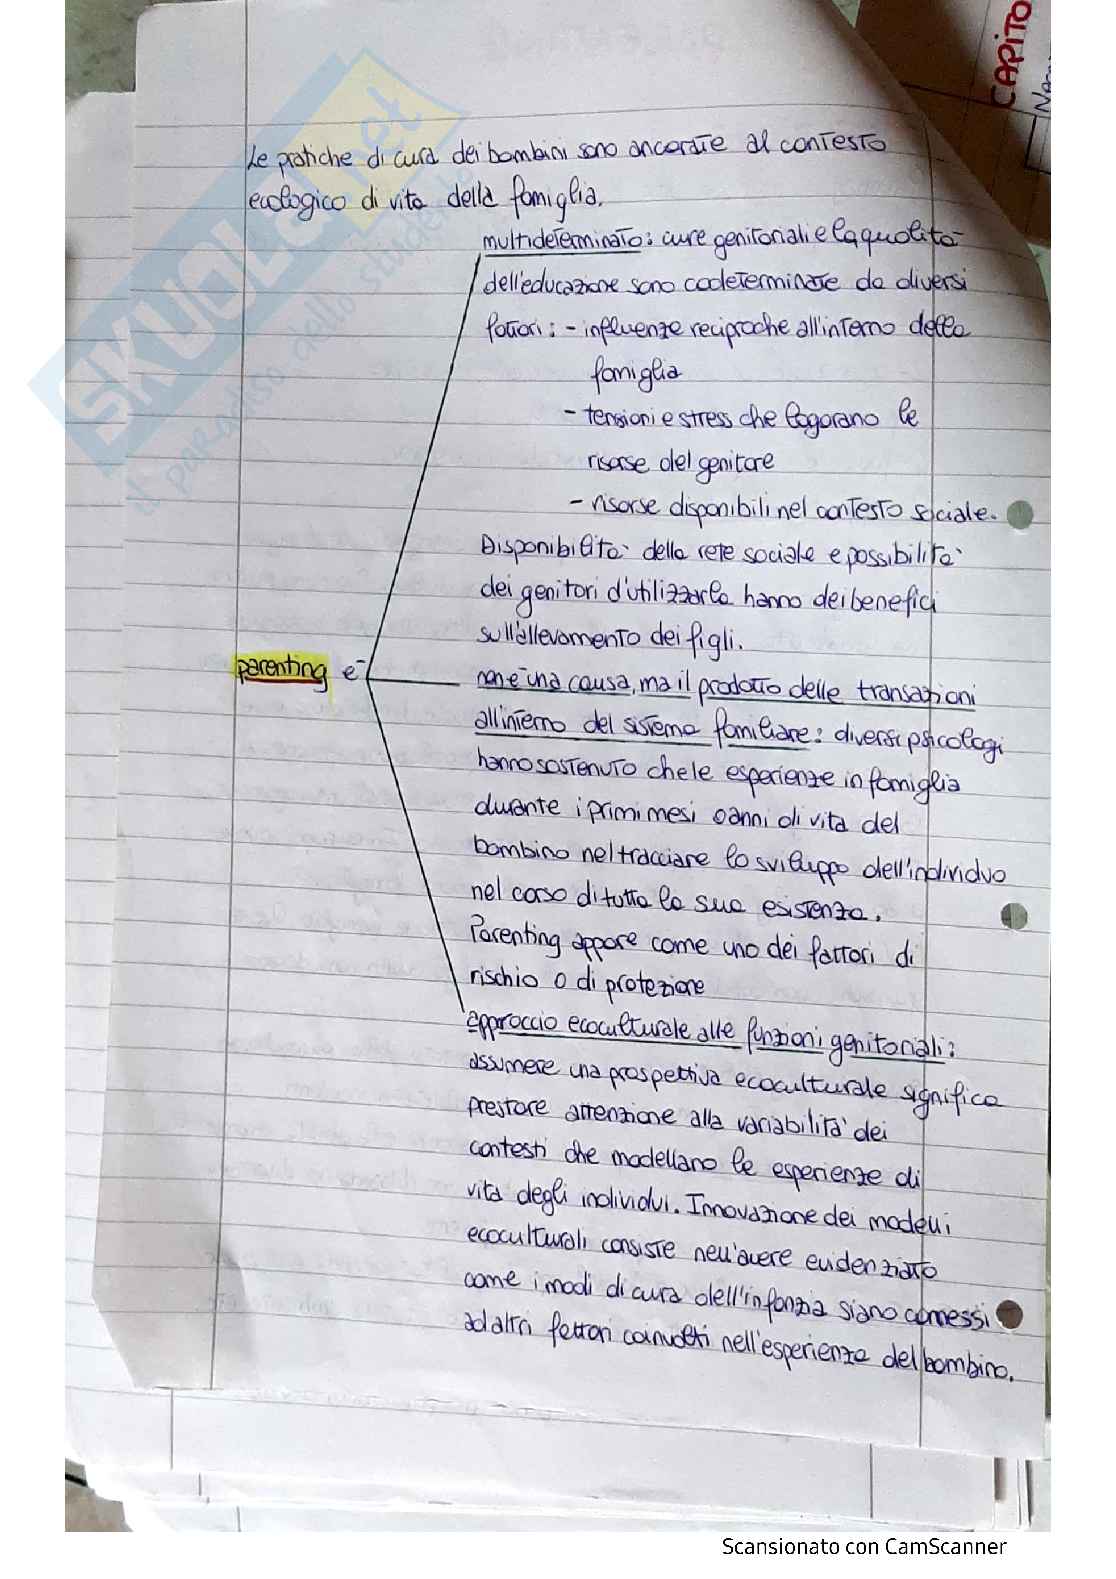 CAPITO
Le pratiche di cura dei bambini sono ancorate al contesto
ecologico di vita della famiglia.
multideterminato: cure genitoriali e la qualità
dell'educazione sono codeterminate da diversi
fattori: - influenze reciproche all'interno della
famiglia
- tensioni e stress che logorano le
risorse del genitore
- risorse disponibili nel contesto sociale.
Disponibilità della rete sociale e possibilità
dei genitori d'utilizzarla hanno dei benefici
sull'allevamento dei figli.
parenting è
non è una causa, ma il prodotto delle transazioni
all'interno del sistema familiare: diversi psicologi
hanno sostenuto che le esperienze in famiglia
durante i primi mesi o anni di vita del
bombino nel tracciare lo sviluppo dell'individuo
nel corso di tutta la sua esistenza.
Parenting appare come uno dei fattori di
rischio o di protezione
approccio ecoculturale alle funzioni genitoriali:
assumere una prospettiva ecoculturale significa
prestare attenzione alla variabilità dei
contesti che modellano le esperienze di
vita degli individui. Innovazione dei modelli
ecoculturali consiste nell'avere evidenziato
come i modi di cura dell'infanzia siano connessi
ad altri fattori coinvolti nell'esperienza del bambino.
SKUOLA.net
il paradiso dello studente
Scansionato con CamScanner